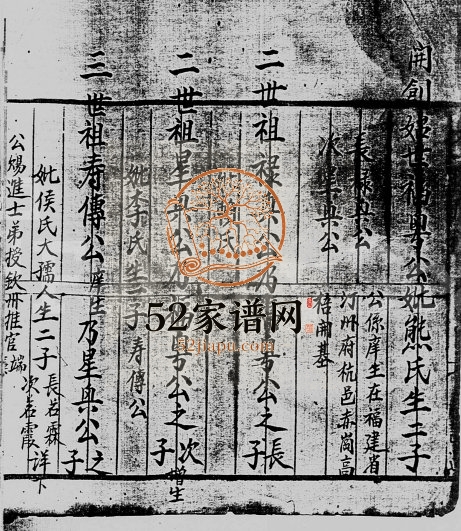 開創始世福興公妣熊氏生二子
長祿興公
次星興公
公係庠生在福建省
汀州府杭邑赤岗高
梧開基
二世祖祿興公乃福興公之長子
妣
氏
二世祖星興公乃福興公之次子
增生
妣李氏生一子寿傳公
三世祖寿傳公庠生乃星興公之子
妣侯氏大孺人生二子長名霖
次名霞
詳下
公賜進士弟授欽州推官端
52家谱网
52jiapu.com